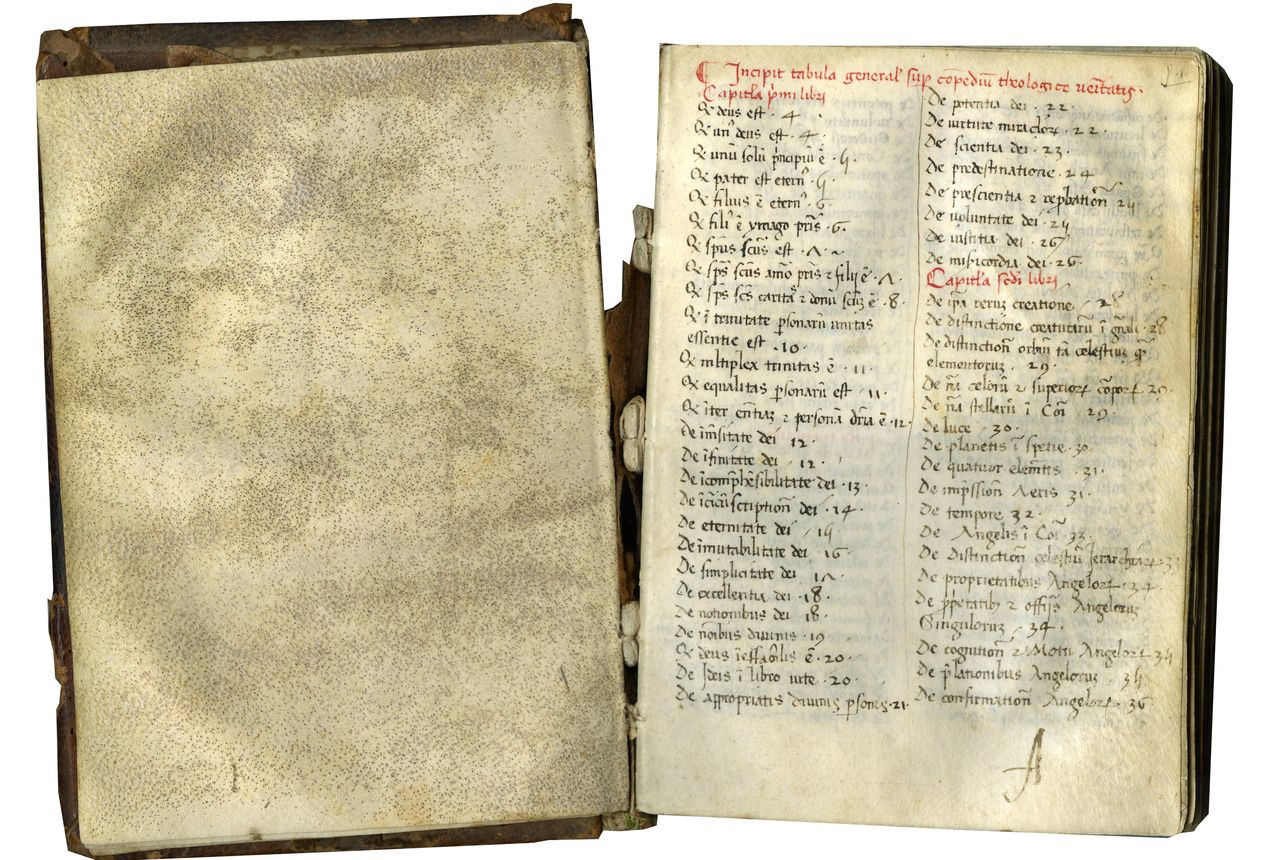 Incipit tabula general' sup cōpediū theologice ueritatis.
Capitła p̄mi libri
Q deus est . 4 .
Q un' deus est . 4 .
Q unū solū principiū ē . 5 .
Q pater est etern' . 5 .
Q filius ē etern' . 6 .
Q fili' ē ymago pr̄is . 6 .
Q spūs sc̄us est . 7 .
Q sp̄s sc̄us amō pr̄is ⁊ filij ē . 7 .
Q sp̄s sc̄s caritā ⁊ donū ē . 8 .
Q ī trinitate p̄sonarū unitas
essentie est . 10 .
Q mltiplex trinitas ē . 11 .
Q equalitas p̄sonarū est . 11 .
Q īter ⁊ persona dr̄ia ē . 12 .
De īmēsitate dei . 12 .
De īfinitate dei . 12 .
De īcomphēsibilitate dei . 13 .
De īcircūscriptioñ dei . 14 .
De eternitate dei . 15
De īmutabilitate dei . 16
De simplicitate dei . 17 .
De excellentia dei . 18 .
De notionibus dei . 18
De nōibus diuinis . 19
Q deus īeffabilis ē . 20 .
De Ideis ī libro uite . 20 .
De appropriatis diuinis p̄sonis . 21
De potentia dei . 22 .
De uirtute miraclorꝝ . 22 .
De scientia dei . 23 .
De predestinatione . 24
De prescientia ⁊ repbatioñ 25
De uoluntate dei . 25
De iustitia dei . 26
De misericordia dei . 26 .
Capitła scd̄i libri
De ip̄a rerum creatione . 28
De distinctione creaturarū ī gn̄ali . 28
De distinctioñ orbiū tā celestium q̄
elementorum . 29 .
De nā celorū ⁊ superiorꝝ corporꝝ 29 .
De nā stellarū ī Cōi . 29 .
De luce . 30 .
De planetis ī spetie . 30 .
De quatuor elemētis . 31 .
De imp̄ssioñ Aeris 31 .
De tempore 32 .
De Angelis ī Cōi 33 .
De Distinctioñ celestiū Jerarchiarꝝ 33
De proprietatibus Angelorꝝ . 34
De p̄prietatib; ⁊ offijs Angelorum
Singulorum . 34 .
De cognitioñ ⁊ Motu Angelorꝝ 35
De p̄lationibus Angelorum . 35
De confirmatioñ Angelorꝝ . 36
A